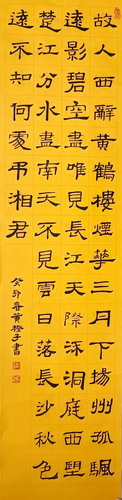 故人西辭黃鶴樓煙華三月下揚州孤颿
遠影碧空盡唯見長江天際流洞庭西望
楚江分水盡南天不見雲日落長沙秋色
遠不知何處弔湘君
癸卯春黃橙子書